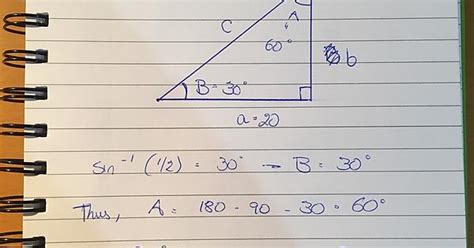 A
C
60°
b
B = 30°
a = 20
sin⁻¹ (1/2) = 30° → B = 30°
Thus, A = 180 - 90 - 30 = 60°